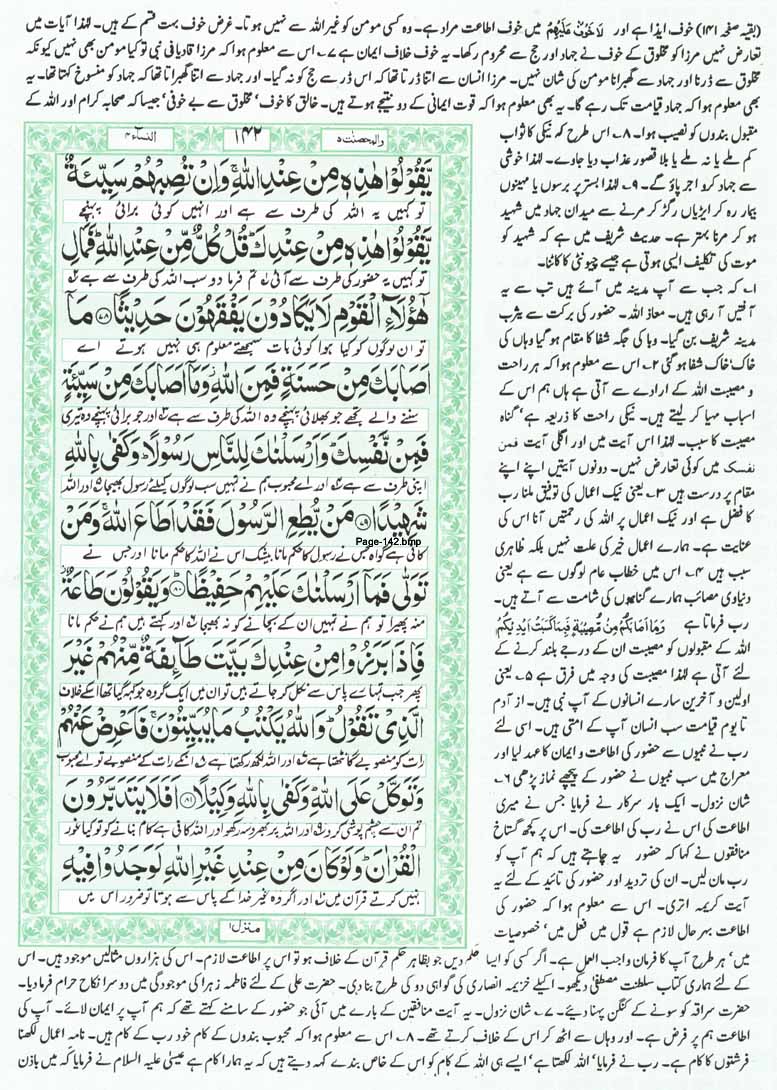 (بقیہ صفحہ ۱۴۱) خوف ایذا ہے اور لَا خَوْفٌ عَلَيْهِمْ میں خوف اطاعت مراد ہے۔ وہ کسی مومن کو غیر اللہ سے نہیں ہوتا۔ غرض خوف بہت قسم کے ہیں۔ لہٰذا آیات میں
تعارض نہیں مرزا کو مخلوق کے خوف نے جہاد اور حج سے محروم رکھا۔ یہ خوف خلاف ایمان ہے ۷۔ اس سے معلوم ہوا کہ مرزا قادیانی نبی تو کیا مومن بھی نہیں کیونکہ
مخلوق سے ڈرنا اور جہاد سے گھبرانا مومن کی شان نہیں۔ مرزا انسان سے اتنا ڈرتا تھا کہ اس ڈر سے حج کو نہ گیا۔ اور جہاد سے اتنا گھبراتا تھا کہ جہاد کو منسوخ کہتا تھا۔ یہ
بھی معلوم ہوا کہ جہاد قیامت تک رہے گا۔ یہ بھی معلوم ہوا کہ قوت ایمانی کے دو نتیجے ہوتے ہیں۔ خالق کا خوف' مخلوق سے بے خوفی' جیسا کہ صحابہ کرام اور اللہ کے
مقبول بندوں کو نصیب ہوا۔ ۸۔ اس طرح کہ نیکی کا ثواب
کم ملے یا نہ ملے یا بلا قصور عذاب دیا جاوے۔ لہٰذا خوشی
سے جہاد کرو اجر پاؤ گے۔ ۹۔ لہٰذا بستر پر برسوں یا مہینوں
بیمار رہ کر ایڑیاں رگڑ کر مرنے سے میدان جہاد میں شہید
ہو کر مرنا بہتر ہے۔ حدیث شریف میں ہے کہ شہید کو
موت کی تکلیف ایسی ہوتی ہے جیسے چیونٹی کا کاٹنا۔
۱۔ کہ جب سے آپ مدینہ میں آئے ہیں تب سے یہ
آفتیں آ رہی ہیں۔ معاذ اللہ۔ حضور کی برکت سے یثرب
مدینہ شریف بن گیا۔ وبا کی جگہ شفا کا مقام ہو گیا وہاں کی
خاک' خاک شفا ہو گئی ۲۔ اس سے معلوم ہوا کہ ہر راحت
و مصیبت اللہ کے ارادے سے آتی ہے ہاں ہم اس کے
اسباب مہیا کر لیتے ہیں۔ نیکی راحت کا ذریعہ ہے' گناہ
مصیبت کا سبب۔ لہٰذا اس آیت میں اور اگلی آیت فمن
نفسک میں کوئی تعارض نہیں۔ دونوں آیتیں اپنے اپنے
مقام پر درست ہیں ۳۔ یعنی نیک اعمال کی توفیق ملنا رب
کا فضل ہے اور نیک اعمال پر اللہ کی رحمتیں آنا اس کی
عنایت ہے۔ ہمارے اعمال خیر کی علت نہیں بلکہ ظاہری
سبب ہیں ۴۔ اس میں خطاب عام لوگوں سے ہے یعنی
دنیاوی مصائب ہمارے گناہوں کی شامت سے آتے ہیں۔
رب فرماتا ہے وَمَا اَصَابَكُمْ مِّنْ مُّصِيْبَةٍ فَبِمَا كَسَبَتْ اَيْدِيْكُمْ
اللہ کے مقبولوں کو مصیبت ان کے درجے بلند کرنے کے
لئے آتی ہے لہٰذا مصیبت کی وجہ میں فرق ہے ۵۔ یعنی
اولین و آخرین سارے انسانوں کے آپ نبی ہیں۔ از آدم
تا یوم قیامت سب انسان آپ کے امتی ہیں۔ اسی لئے
رب نے نبیوں سے حضور کی اطاعت و ایمان کا عہد لیا اور
معراج میں سب نبیوں نے حضور کے پیچھے نماز پڑھی ۶۔
شان نزول۔ ایک بار سرکار نے فرمایا جس نے میری
اطاعت کی اس نے رب کی اطاعت کی۔ اس پر کچھ گستاخ
منافقوں نے کہا کہ حضور یہ چاہتے ہیں کہ ہم آپ کو
رب مان لیں۔ ان کی تردید اور حضور کی تائید کے لئے یہ
آیت کریمہ اتری۔ اس سے معلوم ہوا کہ حضور کی
اطاعت بہرحال لازم ہے قول میں فعل میں' خصوصیات
والمحصنٰت ۵
۱۴۲
النسآء ۴
يَّقُوْلُوْا هٰذِهٖ مِنْ عِنْدِ اللّٰهِ ۚ وَاِنْ تُصِبْهُمْ سَيِّئَةٌ
تو کہیں یہ اللہ کی طرف سے ہے اور انہیں کوئی برائی پہنچے
يَّقُوْلُوْا هٰذِهٖ مِنْ عِنْدِكَ ۭ قُلْ كُلٌّ مِّنْ عِنْدِ اللّٰهِ ۭ فَمَالِ
تو کہیں یہ حضور کی طرف سے آئی تم فرما دو سب اللہ کی طرف سے ہے
هٰٓؤُلَاۗءِ الْقَوْمِ لَا يَكَادُوْنَ يَفْقَهُوْنَ حَدِيْثًا ۷۸ مَآ
تو ان لوگوں کو کیا ہوا کوئی بات سمجھتے معلوم ہی نہیں ہوتے اے
اَصَابَكَ مِنْ حَسَنَةٍ فَمِنَ اللّٰهِ ۡ وَمَآ اَصَابَكَ مِنْ سَيِّئَةٍ
سننے والے تجھے جو بھلائی پہنچے وہ اللہ کی طرف سے ہے اور جو برائی پہنچے وہ تیری
فَمِنْ نَّفْسِكَ ۭ وَاَرْسَلْنٰكَ لِلنَّاسِ رَسُوْلًا ۭ وَكَفٰى بِاللّٰهِ
اپنی طرف سے ہے اور اے محبوب ہم نے تمہیں سب لوگوں کیلئے رسول بھیجا اور اللہ
شَهِيْدًا ۷۹ مَنْ يُّطِعِ الرَّسُوْلَ فَقَدْ اَطَاعَ اللّٰهَ ۚ وَمَنْ
Page-142.bmp
کافی ہے گواہ جس نے رسول کا حکم مانا بیشک اس نے اللہ کا حکم مانا اور جس نے
تَوَلّٰى فَمَآ اَرْسَلْنٰكَ عَلَيْهِمْ حَفِيْظًا ۸۰ وَيَقُوْلُوْنَ طَاعَةٌ ۡ
منہ پھیرا تو ہم نے تمہیں ان کے بچانے کو نہ بھیجا اور کہتے ہیں ہم نے حکم مانا
فَاِذَا بَرَزُوْا مِنْ عِنْدِكَ بَيَّتَ طَاۗىِٕفَةٌ مِّنْهُمْ غَيْرَ
پھر جب تمہارے پاس سے نکل کر جاتے ہیں تو ان میں ایک گروہ جو کہہ گیا تھا اسکے خلاف
الَّذِيْ تَقُوْلُ ۭ وَاللّٰهُ يَكْتُبُ مَا يُبَيِّتُوْنَ ۚ فَاَعْرِضْ عَنْهُمْ
رات کو منصوبے گانٹھتا ہے اور اللہ لکھ رکھتا ہے انکے رات کے منصوبے تو اے محبوب
وَتَوَكَّلْ عَلَى اللّٰهِ ۭ وَكَفٰى بِاللّٰهِ وَكِيْلًا ۸۱ اَفَلَا يَتَدَبَّرُوْنَ
تم ان سے چشم پوشی کرو اور اللہ پر بھروسہ رکھو اور اللہ کافی ہے کام بنانے کو تو کیا غور
الْقُرْاٰنَ ۭ وَلَوْ كَانَ مِنْ عِنْدِ غَيْرِ اللّٰهِ لَوَجَدُوْا فِيْهِ
نہیں کرتے قرآن میں اور اگر وہ غیر خدا کے پاس سے ہوتا تو ضرور اس میں
منزل ۱
میں' ہر طرح آپ کا فرمان واجب العمل ہے۔ اگر کسی کو ایسا حکم دیں جو بظاہر حکم قرآن کے خلاف ہو تو اس پر اطاعت لازم۔ اس کی ہزاروں مثالیں موجود ہیں۔ اس
کے لئے ہماری کتاب سلطنت مصطفیٰ دیکھو۔ اکیلے خزیمہ انصاری کی گواہی دو کی طرح بنا دی۔ حضرت علی کے لئے فاطمہ زہرا کی موجودگی میں دوسرا نکاح حرام فرما دیا۔
حضرت سراقہ کو سونے کے کنگن پہنا دیئے۔ ۷۔ شان نزول۔ یہ آیت منافقین کے بارے میں آئی جو حضور کے سامنے کہتے تھے کہ ہم آپ پر ایمان لائے۔ آپ کی
اطاعت ہم پر فرض ہے۔ اور وہاں سے اٹھ کر اس کے خلاف کرتے تھے۔ ۸۔ اس سے معلوم ہوا کہ محبوب بندوں کے کام خود رب کے کام ہیں۔ نامہ اعمال لکھنا
فرشتوں کا کام ہے۔ رب نے فرمایا' اللہ لکھتا ہے' ایسے ہی اللہ کے کام کو اس کے خاص بندے کہہ دیتے ہیں کہ یہ ہمارا کام ہے عیسیٰ علیہ السلام نے فرمایا کہ میں باذن